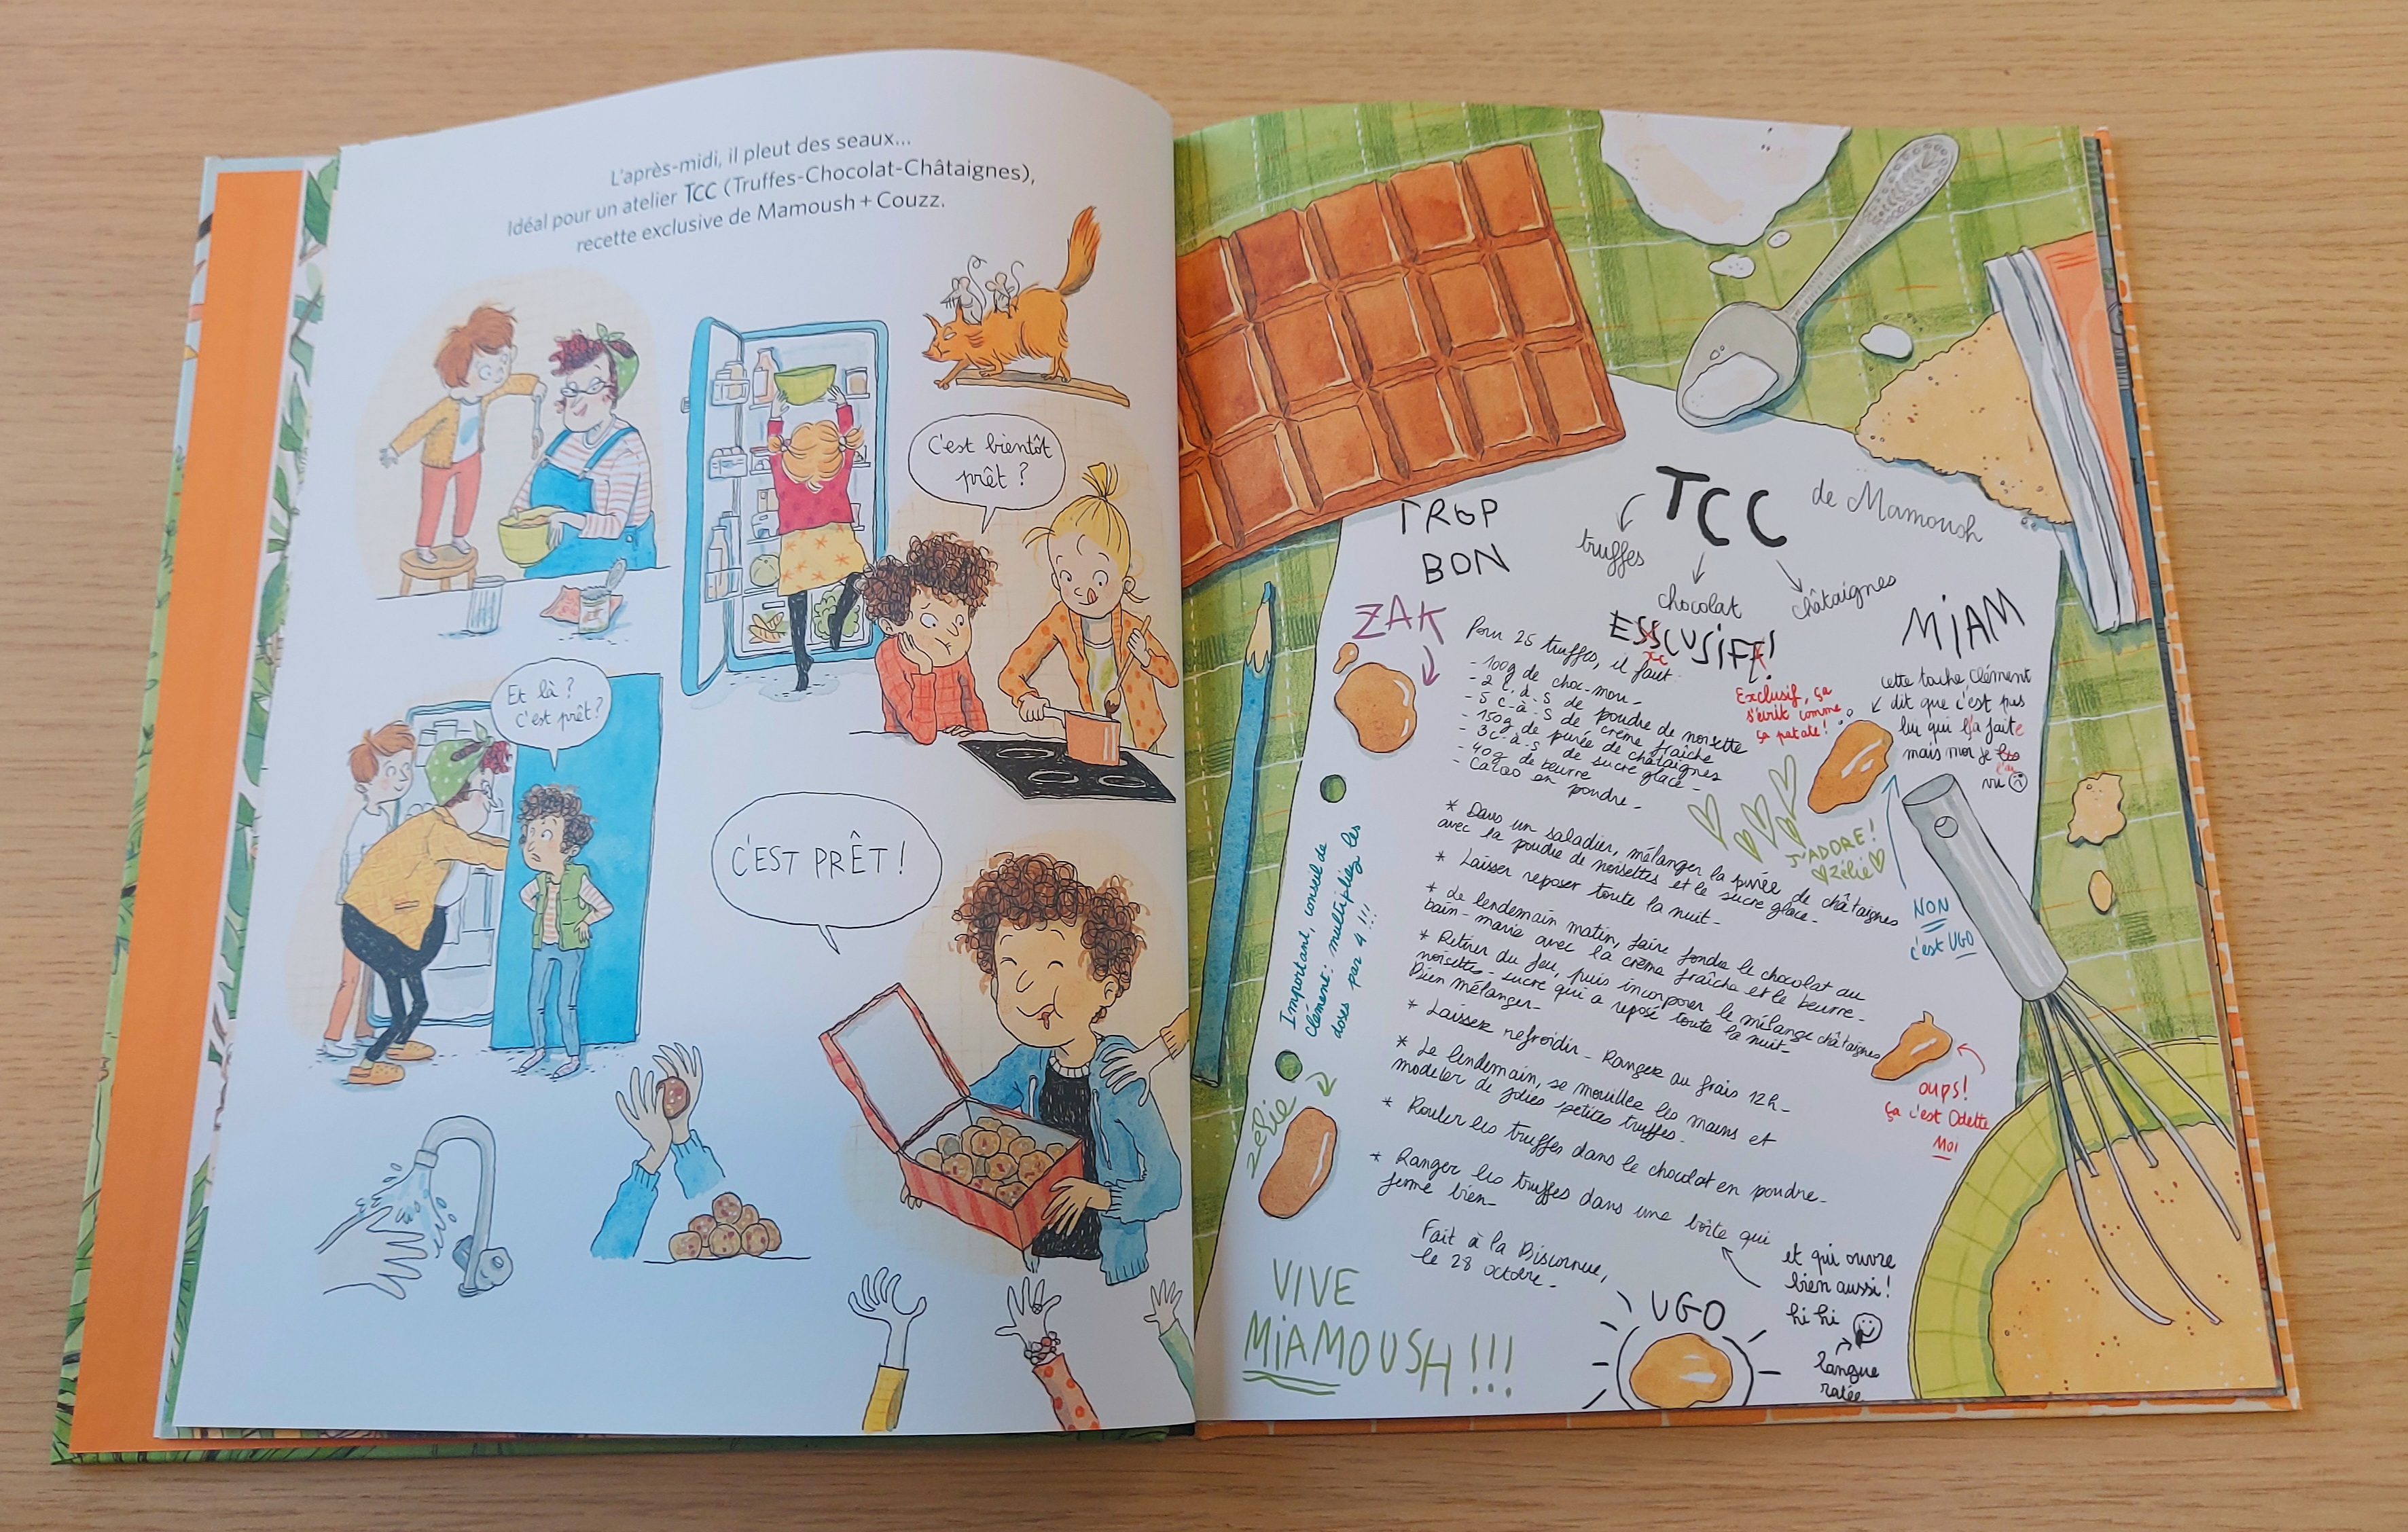 L'après-midi, il pleut des seaux...
Idéal pour un atelier TCC (Truffes-Chocolat-Châtaignes),
recette exclusive de Mamoush + Couzz.
C'est bientôt
prêt ?
Et là ?
C'est prêt ?
C'EST PRÊT !
TROP
BON
TCC
de Mamoush
truffes
chocolat
châtaignes
ZAK
ESSCUSIFF !
xc
MIAM
Pour 25 truffes, il faut
- 100g de choc-mou-
- 2 c.à-s de poudre de noisette
- 5 c-à-s de crème fraîche
- 150g de purée de châtaignes
- 3c-à-s de sucre glace-
- 40g de beurre
- Cacao en poudre-
Exclusif, ça
s'écrit comme
ça patate !
cette tache Clément
dit que c'est pas
lui qui l'a faite
mais moi je l'ai
vu
J'ADORE !
Zélie
NON
c'est UGO
* Dans un saladier, mélanger la purée de châtaignes
avec la poudre de noisettes et le sucre glace-
* Laisser reposer toute la nuit-
* Le lendemain matin, faire fondre le chocolat au
bain-marie avec la crème fraîche et le beurre-
* Retirer du feu, puis incorporer le mélange châtaignes
noisettes-sucre qui a reposé toute la nuit-
Bien mélanger-
* Laisser refroidir- Ranger au frais 12h-
* Le lendemain, se mouiller les mains et
modeler de jolies petites truffes-
* Rouler les truffes dans le chocolat en poudre-
* Ranger les truffes dans une boîte qui
ferme bien-
et qui ouvre
bien aussi !
hi hi
langue
ratée
Important, conseil de
Clément : multipliez les
doses par 4 !!!
zélie
OUPS !
ça c'est Odette
MOI
Fait à la Biscornue,
le 28 octobre-
UGO
VIVE
MiAMOUSH !!!